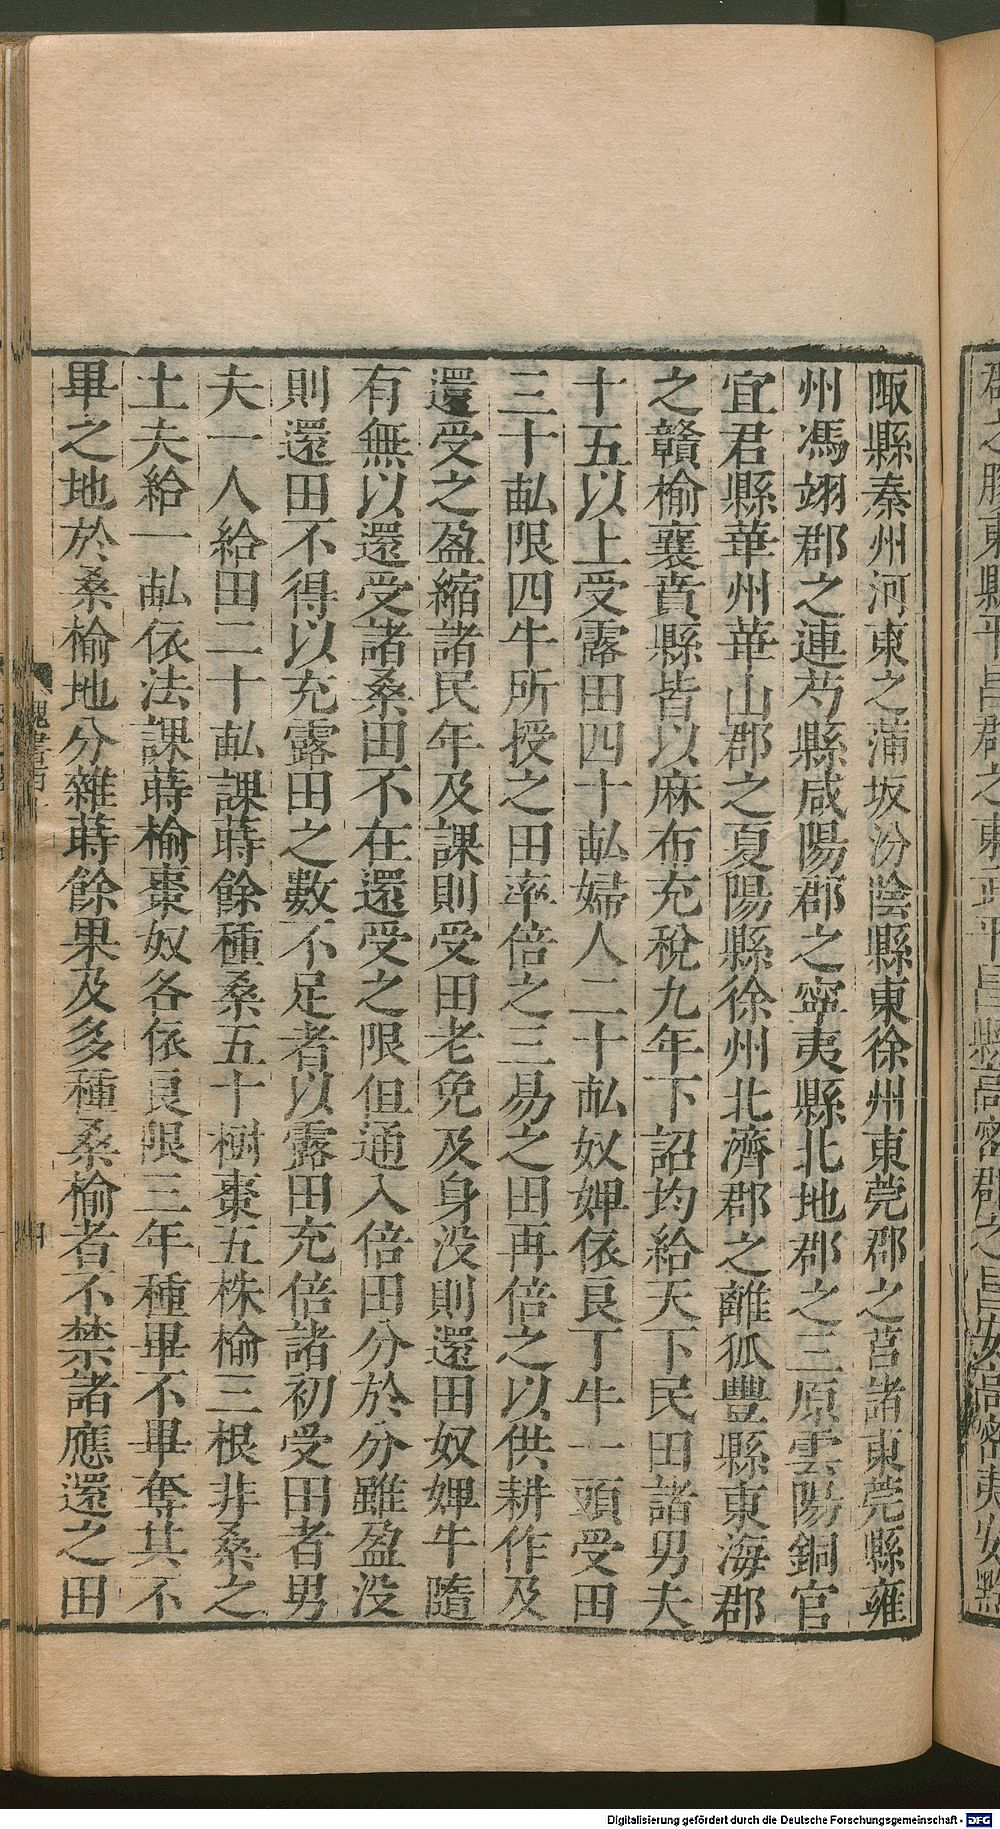 陬縣秦州河東之蒲坂汾陰縣東徐州東莞郡之莒諸東莞縣雍
州馮翊郡之連芍縣咸陽郡之寧夷縣北地郡之三原雲陽銅官
宜君縣華州華山郡之夏陽縣徐州北濟郡之離狐豐縣東海郡
之贛榆襄賁縣皆以麻布充稅九年下詔均給天下民田諸男夫
十五以上受露田四十畝婦人二十畝奴婢依良丁牛一頭受田
三十畝限四牛所授之田率倍之三易之田再倍之以供耕作及
還受之盈縮諸民年及課則受田老免及身没則還田奴婢牛隨
有無以還受諸桑田不在還受之限但通入倍田分於分雖盈没
則還田不得以充露田之數不足者以露田充倍諸初受田者男
夫一人給田二十畝課蒔餘種桑五十樹棗五株榆三根非桑之
土夫給一畝依法課蒔榆棗奴各依良限三年種畢不畢奪其不
畢之地於桑榆地分雜蒔餘果及多種桑榆者不禁諸應還之田
Digitalisierung gefördert durch die Deutsche Forschungsgemeinschaft - DFG